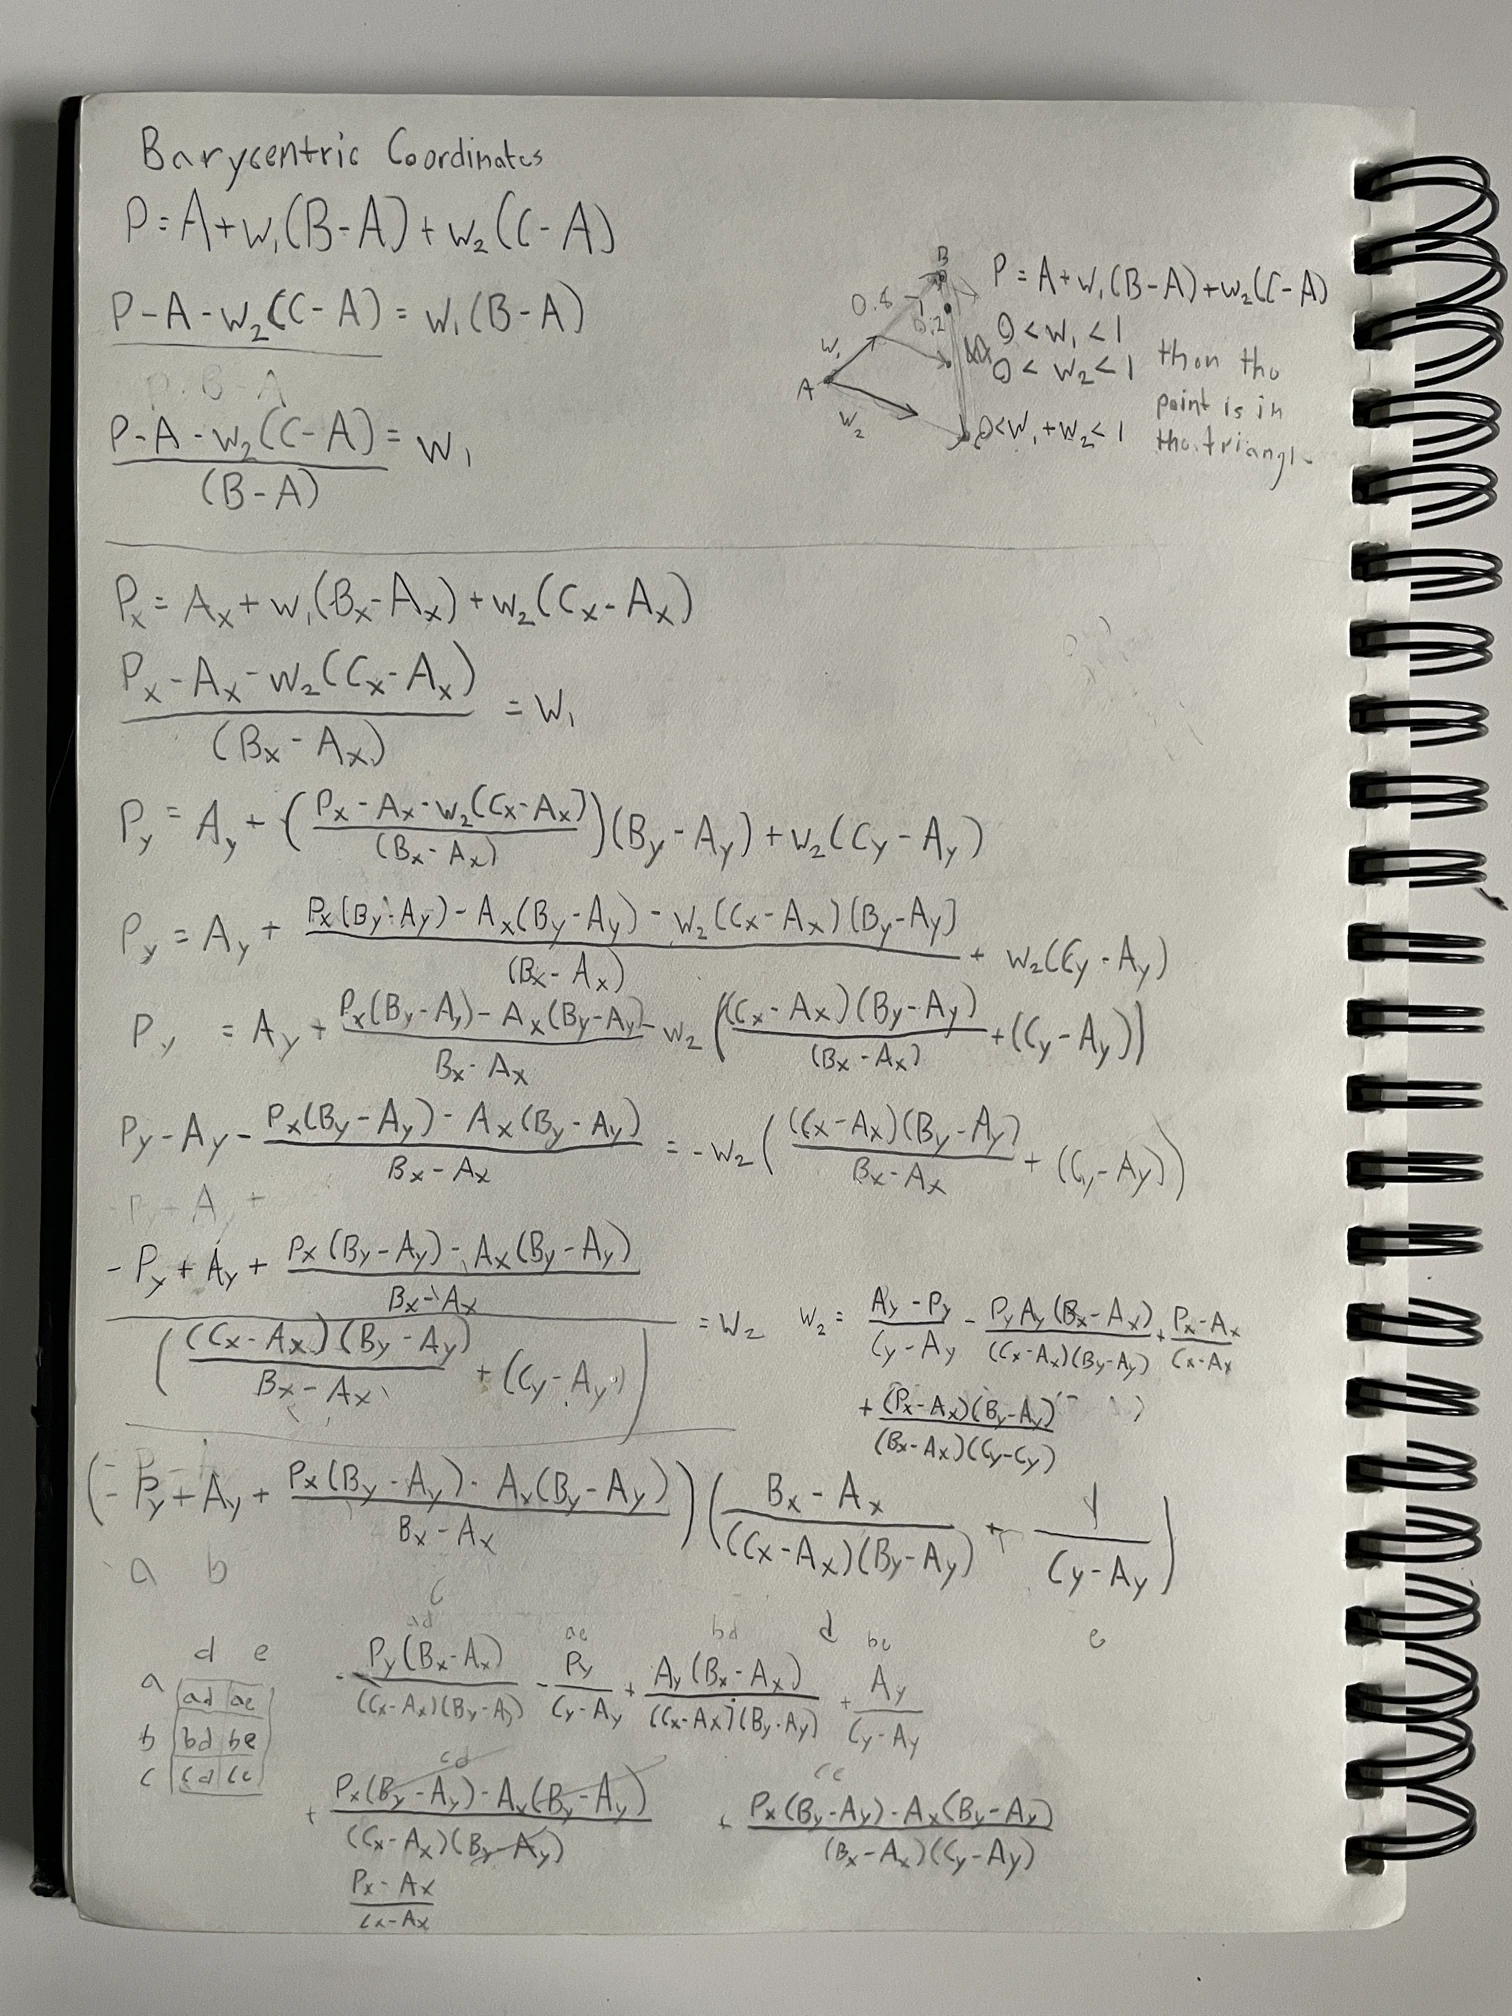 Barycentric Coordinates
P = A + w₁(B - A) + w₂(C - A)
P - A - w₂(C - A) = w₁(B - A)
P - B - A
(P - A - w₂(C - A)) / (B - A) = w₁
B
0.8
0.2
w₁
A
w₂
C
P = A + w₁(B - A) + w₂(C - A)
0 < w₁ < 1
0 < w₂ < 1
0 < w₁ + w₂ < 1
then the
point is in
the triangle
Pₓ = Aₓ + w₁(Bₓ - Aₓ) + w₂(Cₓ - Aₓ)
(Pₓ - Aₓ - w₂(Cₓ - Aₓ)) / (Bₓ - Aₓ) = w₁
P_y = A_y + ((Pₓ - Aₓ - w₂(Cₓ - Aₓ)) / (Bₓ - Aₓ))(B_y - A_y) + w₂(C_y - A_y)
P_y = A_y + (Pₓ(B_y - A_y) - Aₓ(B_y - A_y) - w₂(Cₓ - Aₓ)(B_y - A_y)) / (Bₓ - Aₓ) + w₂(C_y - A_y)
P_y = A_y + (Pₓ(B_y - A_y) - Aₓ(B_y - A_y)) / (Bₓ - Aₓ) - w₂((Cₓ - Aₓ)(B_y - A_y) / (Bₓ - Aₓ) + (C_y - A_y))
P_y - A_y - (Pₓ(B_y - A_y) - Aₓ(B_y - A_y)) / (Bₓ - Aₓ) = -w₂((Cₓ - Aₓ)(B_y - A_y) / (Bₓ - Aₓ) + (C_y - A_y))
- P_y + A_y +
(- P_y + A_y + (Pₓ(B_y - A_y) - Aₓ(B_y - A_y)) / (Bₓ - Aₓ)) / ((Cₓ - Aₓ)(B_y - A_y) / (Bₓ - Aₓ) + (C_y - A_y)) = w₂
w₂ = (A_y - P_y) / (C_y - A_y) - P_y A_y (Bₓ - Aₓ) / ((Cₓ - Aₓ)(B_y - A_y)) + (Pₓ - Aₓ) / (Cₓ - Aₓ)
+ (Pₓ - Aₓ)(B_y - A_y) / ((Bₓ - Aₓ)(C_y - C_y))
(- P_y + A_y + (Pₓ(B_y - A_y) - Aₓ(B_y - A_y)) / (Bₓ - Aₓ)) ((Bₓ - Aₓ) / ((Cₓ - Aₓ)(B_y - A_y)) + 1 / (C_y - A_y))
a b c d e
d e
a ad ae
b bd be
c cd ce
ad ae bd be
- P_y(Bₓ - Aₓ) / ((Cₓ - Aₓ)(B_y - A_y)) - P_y / (C_y - A_y) + A_y(Bₓ - Aₓ) / ((Cₓ - Aₓ)(B_y - A_y)) + A_y / (C_y - A_y)
cd ce
+ (Pₓ(B_y - A_y) - Aₓ(B_y - A_y)) / ((Cₓ - Aₓ)(B_y - A_y)) + (Pₓ(B_y - A_y) - Aₓ(B_y - A_y)) / ((Bₓ - Aₓ)(C_y - A_y))
(Pₓ - Aₓ) / (Cₓ - Aₓ)